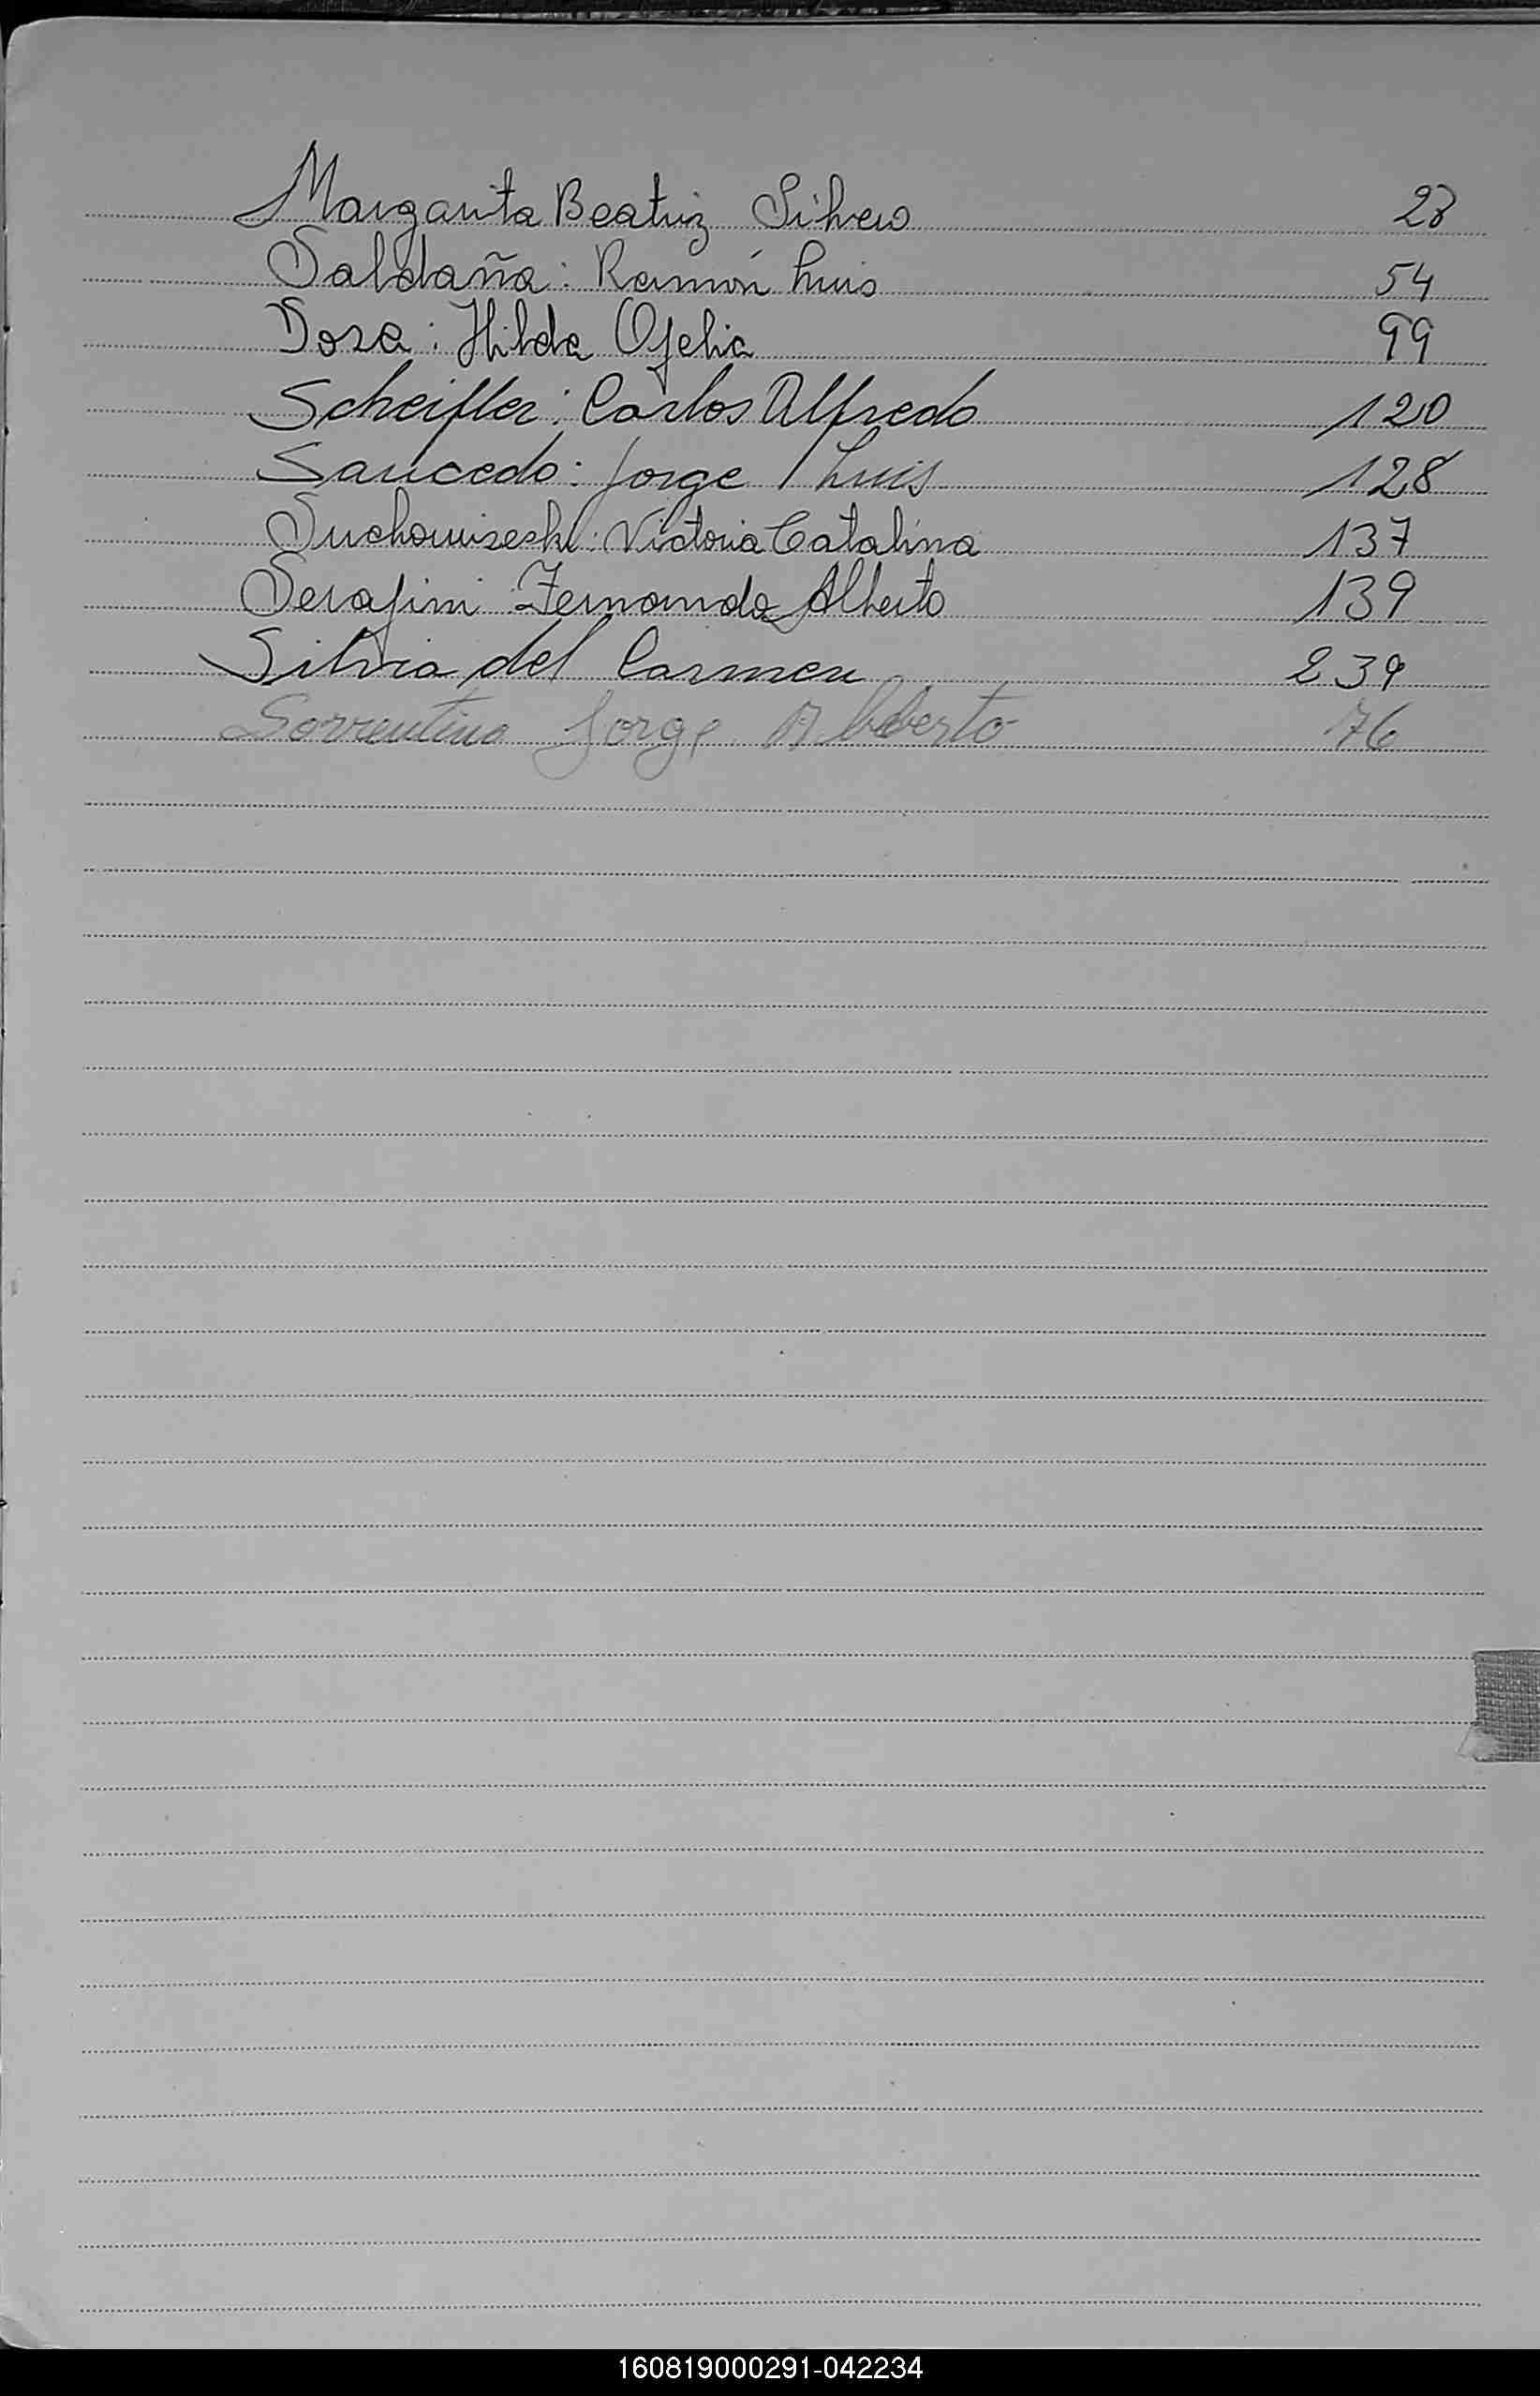 Margarita Beatriz Silvero 23
Saldaña: Ramón Luis 54
Sosa: Hilda Ofelia 99
Scheifler: Carlos Alfredo 120
Saucedo: Jorge Luis 128
Victoria Catalina 137
Serafini Fernando Alberto 139
Silvia del Carmen 239
Sorrentino Jorge Alberto 76
160819000291-042234